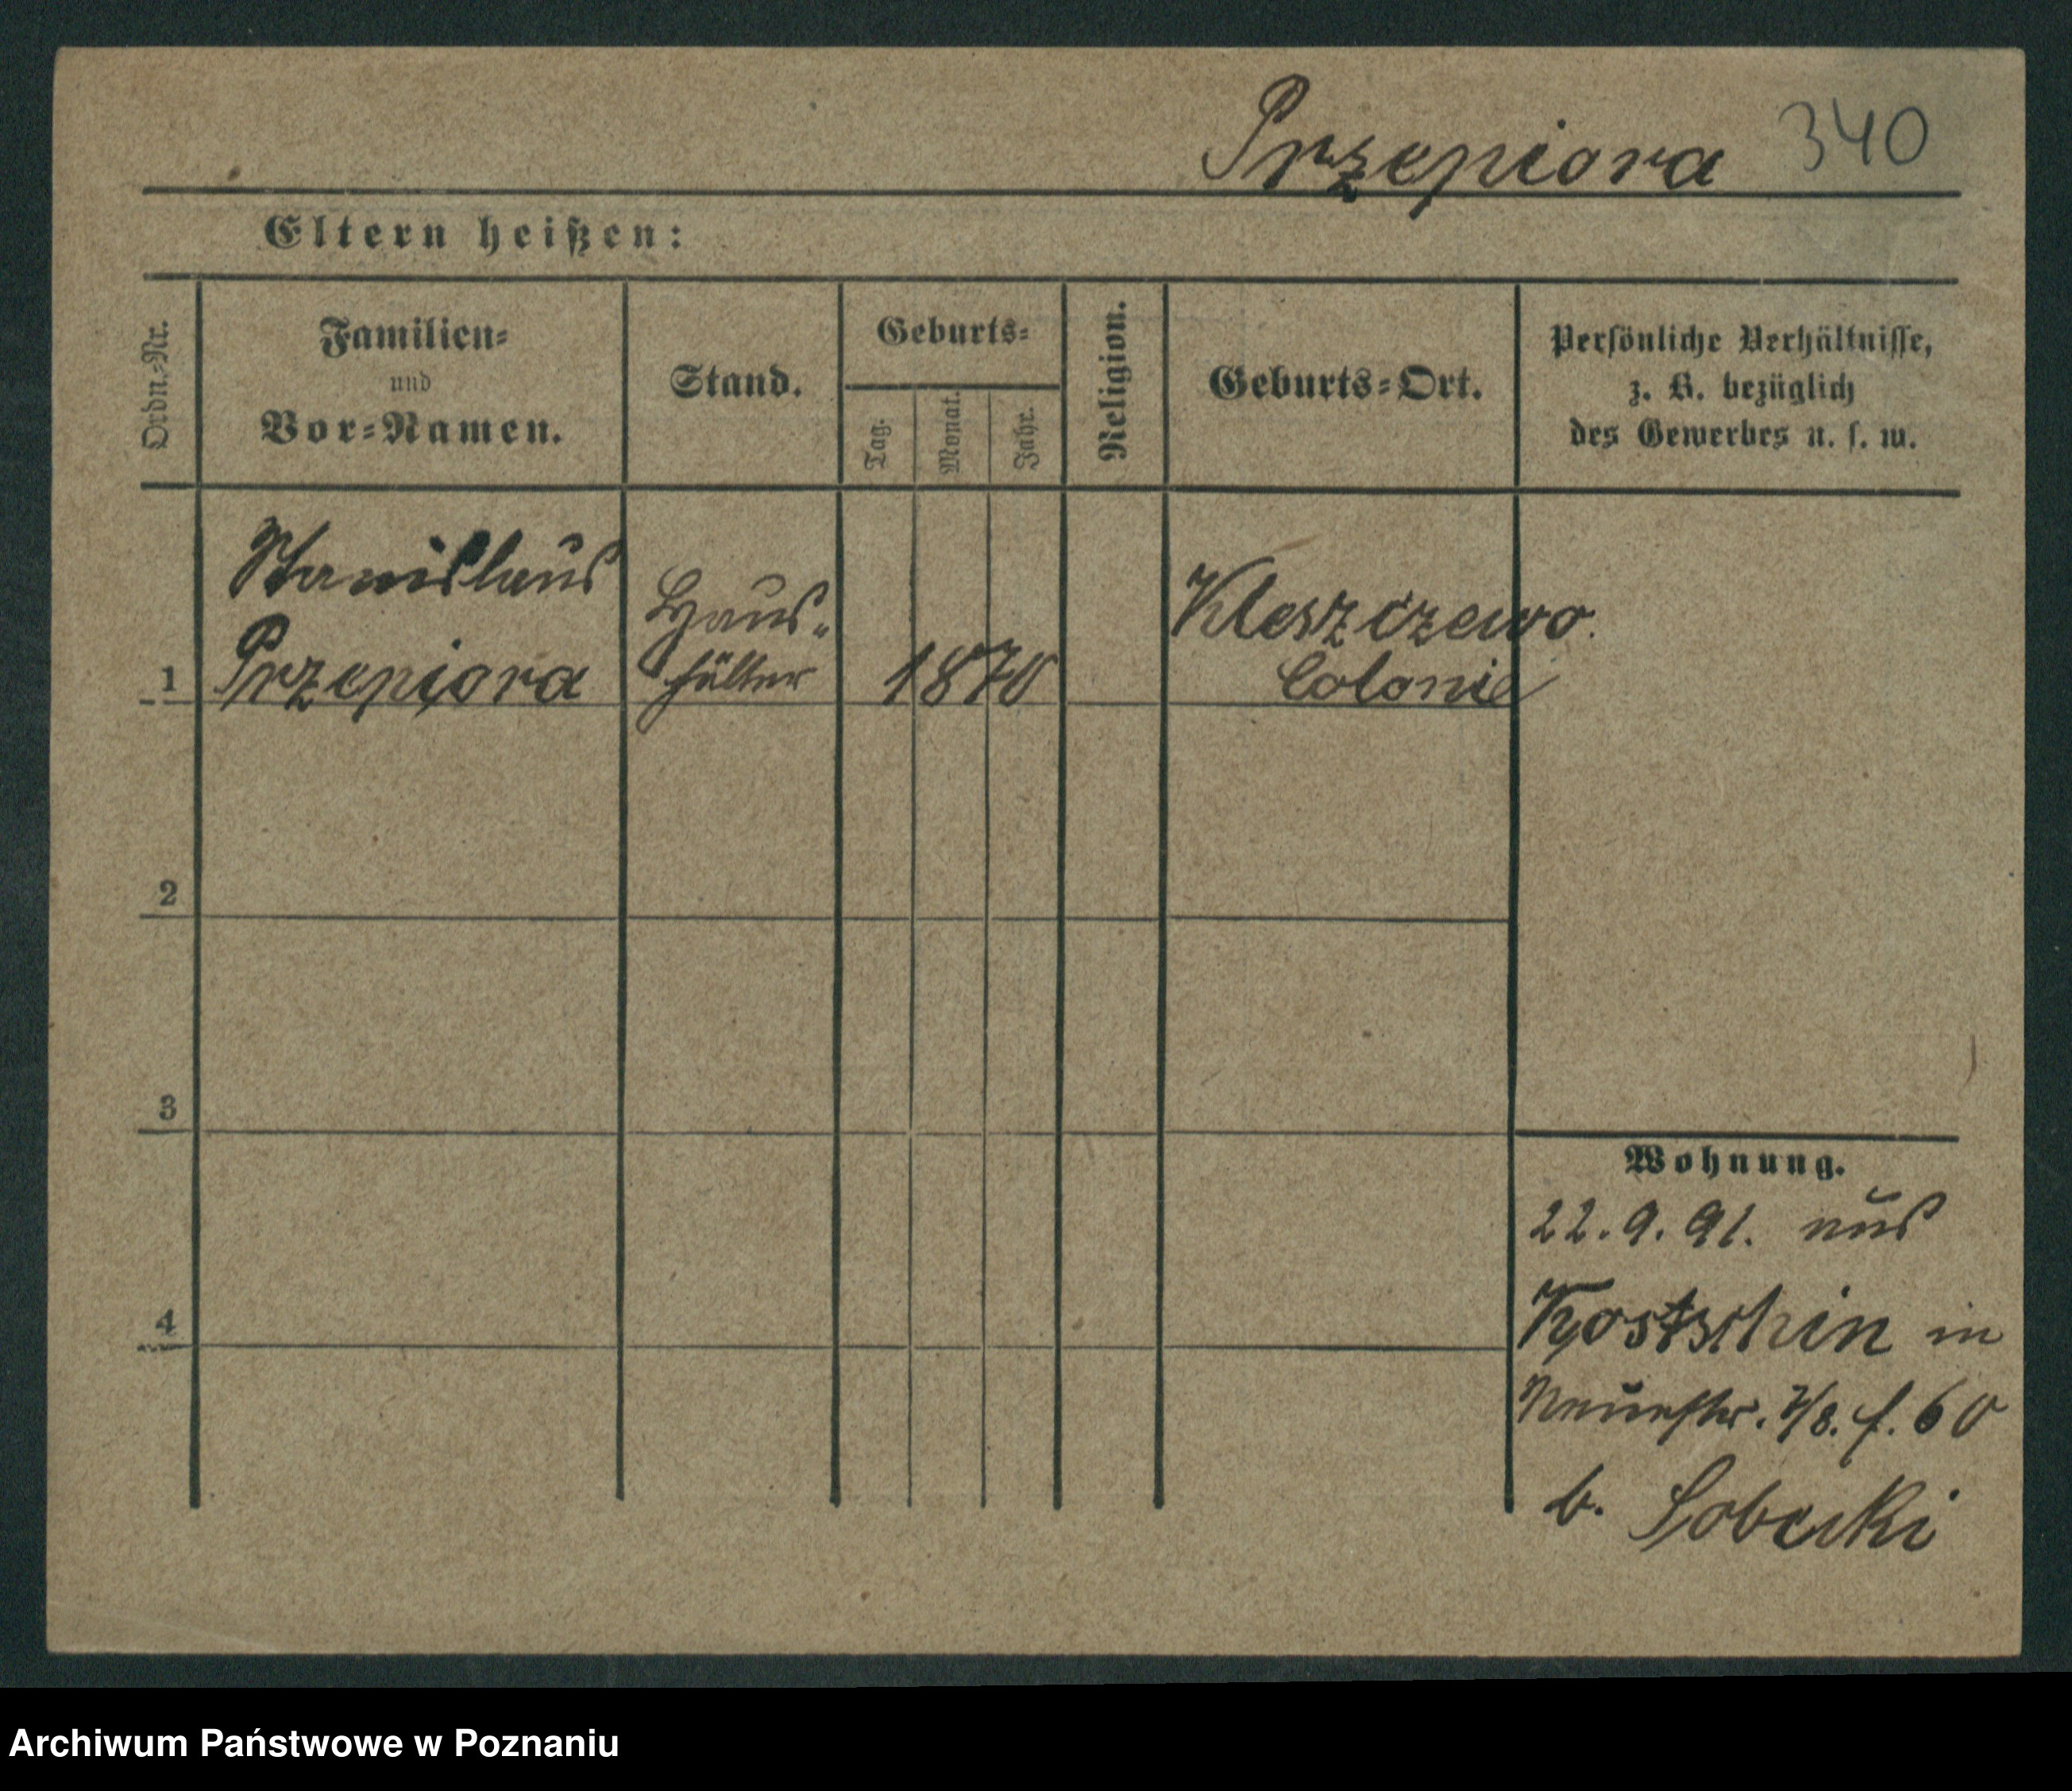 Przepiora 340
Eltern heißen:
Ordn.-Nr.
Familien-
und
Vor-Namen.
Stand.
Geburts-
Tag.
Monat.
Jahr.
Religion.
Geburts-Ort.
Persönliche Verhältnisse,
z. B. bezüglich
des Gewerbes u. s. w.
1
Stanislaus
Przepiora
Haus-
hälter
1870
Kleszczewo.
Colonie
2
3
4
Wohnung.
22.9.91. aus
Kostschin in
Neuestr. 7/8. f. 60
b. Sobecki
Archiwum Państwowe w Poznaniu